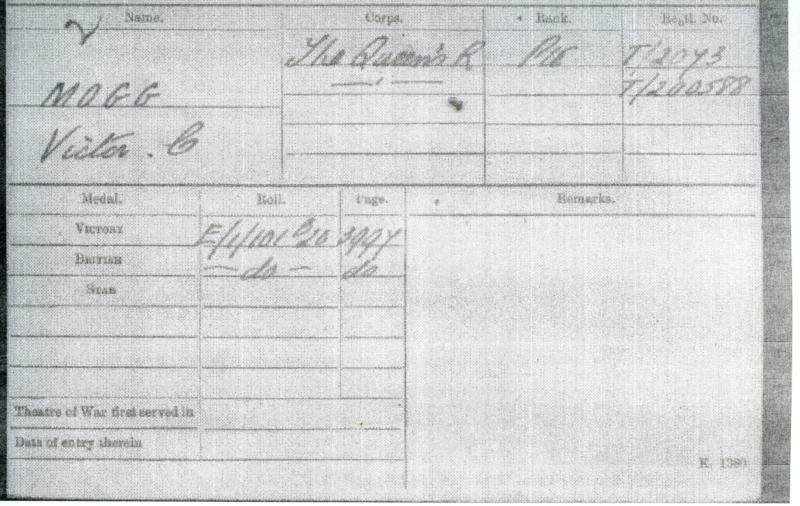 Name. Corps. Rank. Regtl. No.
The Queen's R Pte T/2073
— " —
MOGG T/200588
Victor. C
Medal. Roll. Page. Remarks.
VICTORY E/1/101 B20 3994
BRITISH — do — do
STAR
Theatre of War first served in
Date of entry therein
K. 1380